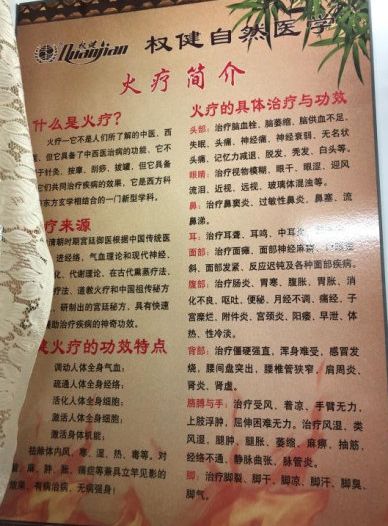 权健
Quanjian
权健自然医学
火疗简介
什么是火疗?
火疗一它不是人们所了解的中医、西
但它具备了中西医治病的功能、它不
于针灸、按摩、刮痧、拔罐,但它具备
它们共同治疗疾病的效果,它是西方科
东方玄学相结合的一门新型学科。
疗来源
清朝时期宫廷御医根据中国传统医
进经络,气血理论和现代神经、
化、代谢理论、在古代熏蒸疗法、
疗法、道教火疗和中国祖传秘方
研制出的宫廷秘方、具有快速
辅助治疗疾病的神奇功效。
火疗的功效特点
调动人体全身气血;
疏通人体全身经络;
活化人体全身细胞;
激活人体全身细胞;
激活人体身机能;
祛除体内风、寒、湿、热、毒等。对
酸、麻、肿、胀、痛症等兼具立竿见影的
效果,有病治病、无病强身!
火疗的具体治疗与功效
头部:治疗脑血栓、脑萎缩、脑供血不足、
失眠、头痛、神经痛、神经衰弱、无名状
头痛、记忆力减退、脱发、秃发、白头等。
眼睛:治疗视物模糊、眼干、眼湿、迎风
流泪、近视、远视、玻璃体混浊等。
鼻:治疗鼻窦炎、过敏性鼻炎、鼻塞、流
鼻涕。
耳:治疗耳聋、耳鸣、中耳炎
面部:治疗面瘫、面部神经麻
斜、面部发紧、反应迟钝及各种面部疾病。
腹部:治疗肠炎、胃寒、腹胀、胃胀、消
化不良、呕吐、便秘、月经不调、痛经、子
宫糜烂、附件炎、宫颈炎、阳痿、早泄、体
热、性冷淡。
背部:治疗僵硬强直、浑身难受、感冒发
烧、腰间盘突出、腰椎管狭窄、肩周炎、
肾炎、肾虚。
胳膊与手:治疗受风、着凉、手臂无力、
上肢浮肿、屈伸困难无力。治疗风湿、类
风湿、腿肿、腿胀、萎缩、麻痹、抽筋、
经络不通、静脉曲张、脉管炎。
脚:治疗脚裂、脚干、脚凉、脚汗、脚臭、
脚气。